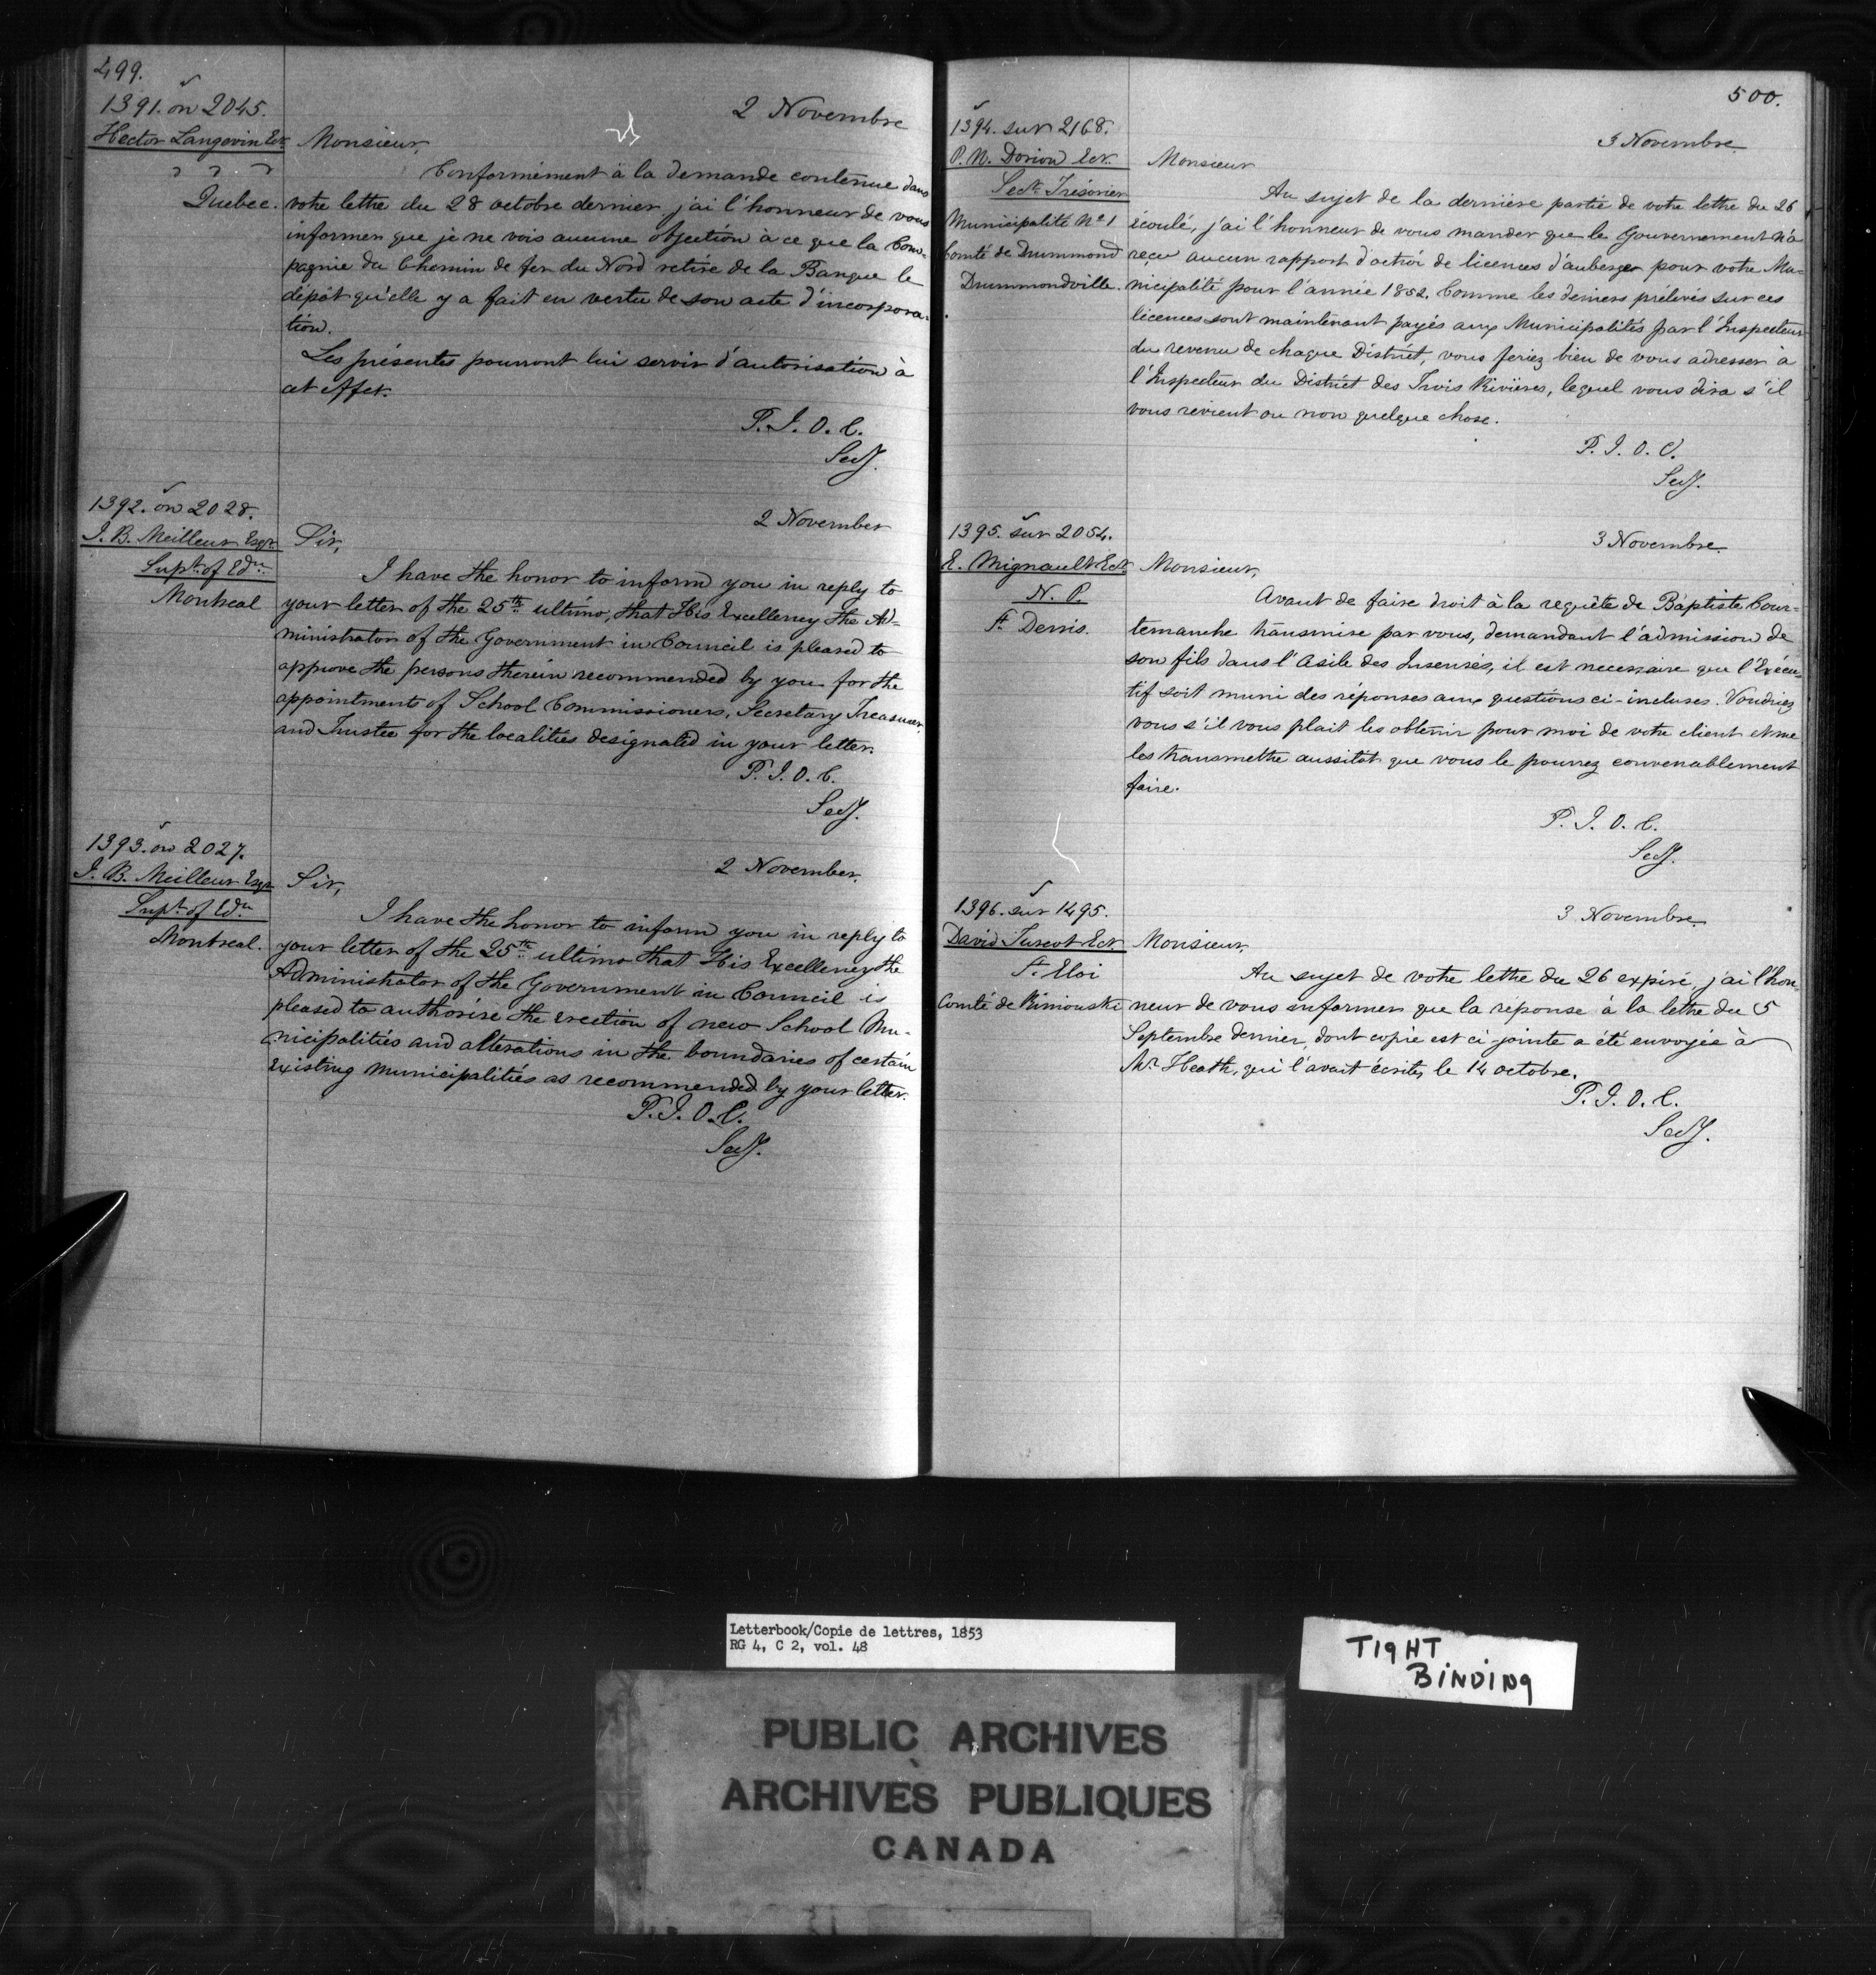 499.
1391. on 2045.
Hector Langevin Ecr.
Quebec.
2 Novembre
Monsieur,
Conformément à la demande contenue dans
votre lettre du 28 octobre dernier j'ai l'honneur de vous
informer que je ne vois aucune objection à ce que la Com-
pagnie du Chemin de fer du Nord retire de la Banque le
dépôt qu'elle y a fait en vertu de son acte d'incorpora-
tion.
Les présentes pourront lui servir d'autorisation à
cet effet.
P. J. O. C.
Secy.
1392. on 2028.
J. B. Meilleur Esqr.
Supt. of Edn.
Montreal
2 November
Sir,
I have the honor to inform you in reply to
your letter of the 25th ultimo, that His Excellency the Ad-
ministrator of the Government in Council is pleased to
approve the persons therein recommended by you for the
appointments of School Commissioners, Secretary Treasurer,
and Trustee for the localities designated in your letter.
P. J. O. C.
Secy.
1393. on 2027.
J. B. Meilleur Esqr.
Supt. of Edn.
Montreal.
2 November.
Sir,
I have the honor to inform you in reply to
your letter of the 25th ultimo that His Excellency the
Administrator of the Government in Council is
pleased to authorise the erection of new School Mu-
nicipalities and alterations in the boundaries of certain
existing Municipalities as recommended by your letter.
P. J. O. C.
Secy.
500.
1394. sur 2168.
P. N. Dorion Ecr.
Sect. Trésorier
Municipalité No. 1
Comté de Drummond
Drummondville.
3 Novembre
Monsieur
Au sujet de la dernière partie de votre lettre du 26
écoulé, j'ai l'honneur de vous mander que le Gouvernement n'a
reçu aucun rapport d'octroi de licences d'auberges pour votre Mu-
nicipalité pour l'année 1852. Comme les deniers prélevés sur ces
licences sont maintenant payés aux Municipalités par l'Inspecteur
du revenu de chaque District, vous feriez bien de vous adresser à
l'Inspecteur du District des Trois Rivières, lequel vous dira s'il
vous revient ou non quelque chose.
P. J. O. C.
Secy.
1395. sur 2054.
E. Mignault Ecr.
N. P.
St. Denis.
3 Novembre.
Monsieur,
Avant de faire droit à la requête de Baptiste Cour-
temanche transmise par vous, demandant l'admission de
son fils dans l'Asile des Insensés, il est necessaire que l'Exécu-
tif soit muni des réponses aux questions ci-incluses. Voudriez
vous s'il vous plait les obtenir pour moi de votre client et me
les transmettre aussitot que vous le pourrez convenablement
faire.
P. J. O. C.
Secy.
1396. sur 1495.
David Turcot Ecr.
St. Eloi
Comté de Rimouski
3 Novembre
Monsieur,
Au sujet de votre lettre du 26 expiré, j'ai l'hon-
neur de vous informer que la reponse à la lettre du 5
Septembre dernier, dont copie est ci-jointe a été envoyée à
Mr. Heath, qui l'avait écrite, le 14 octobre.
P. J. O. C.
Secy.
Letterbook/Copie de lettres, 1853
RG 4, C 2, vol. 48
TIGHT
BINDING
PUBLIC ARCHIVES
ARCHIVES PUBLIQUES
CANADA